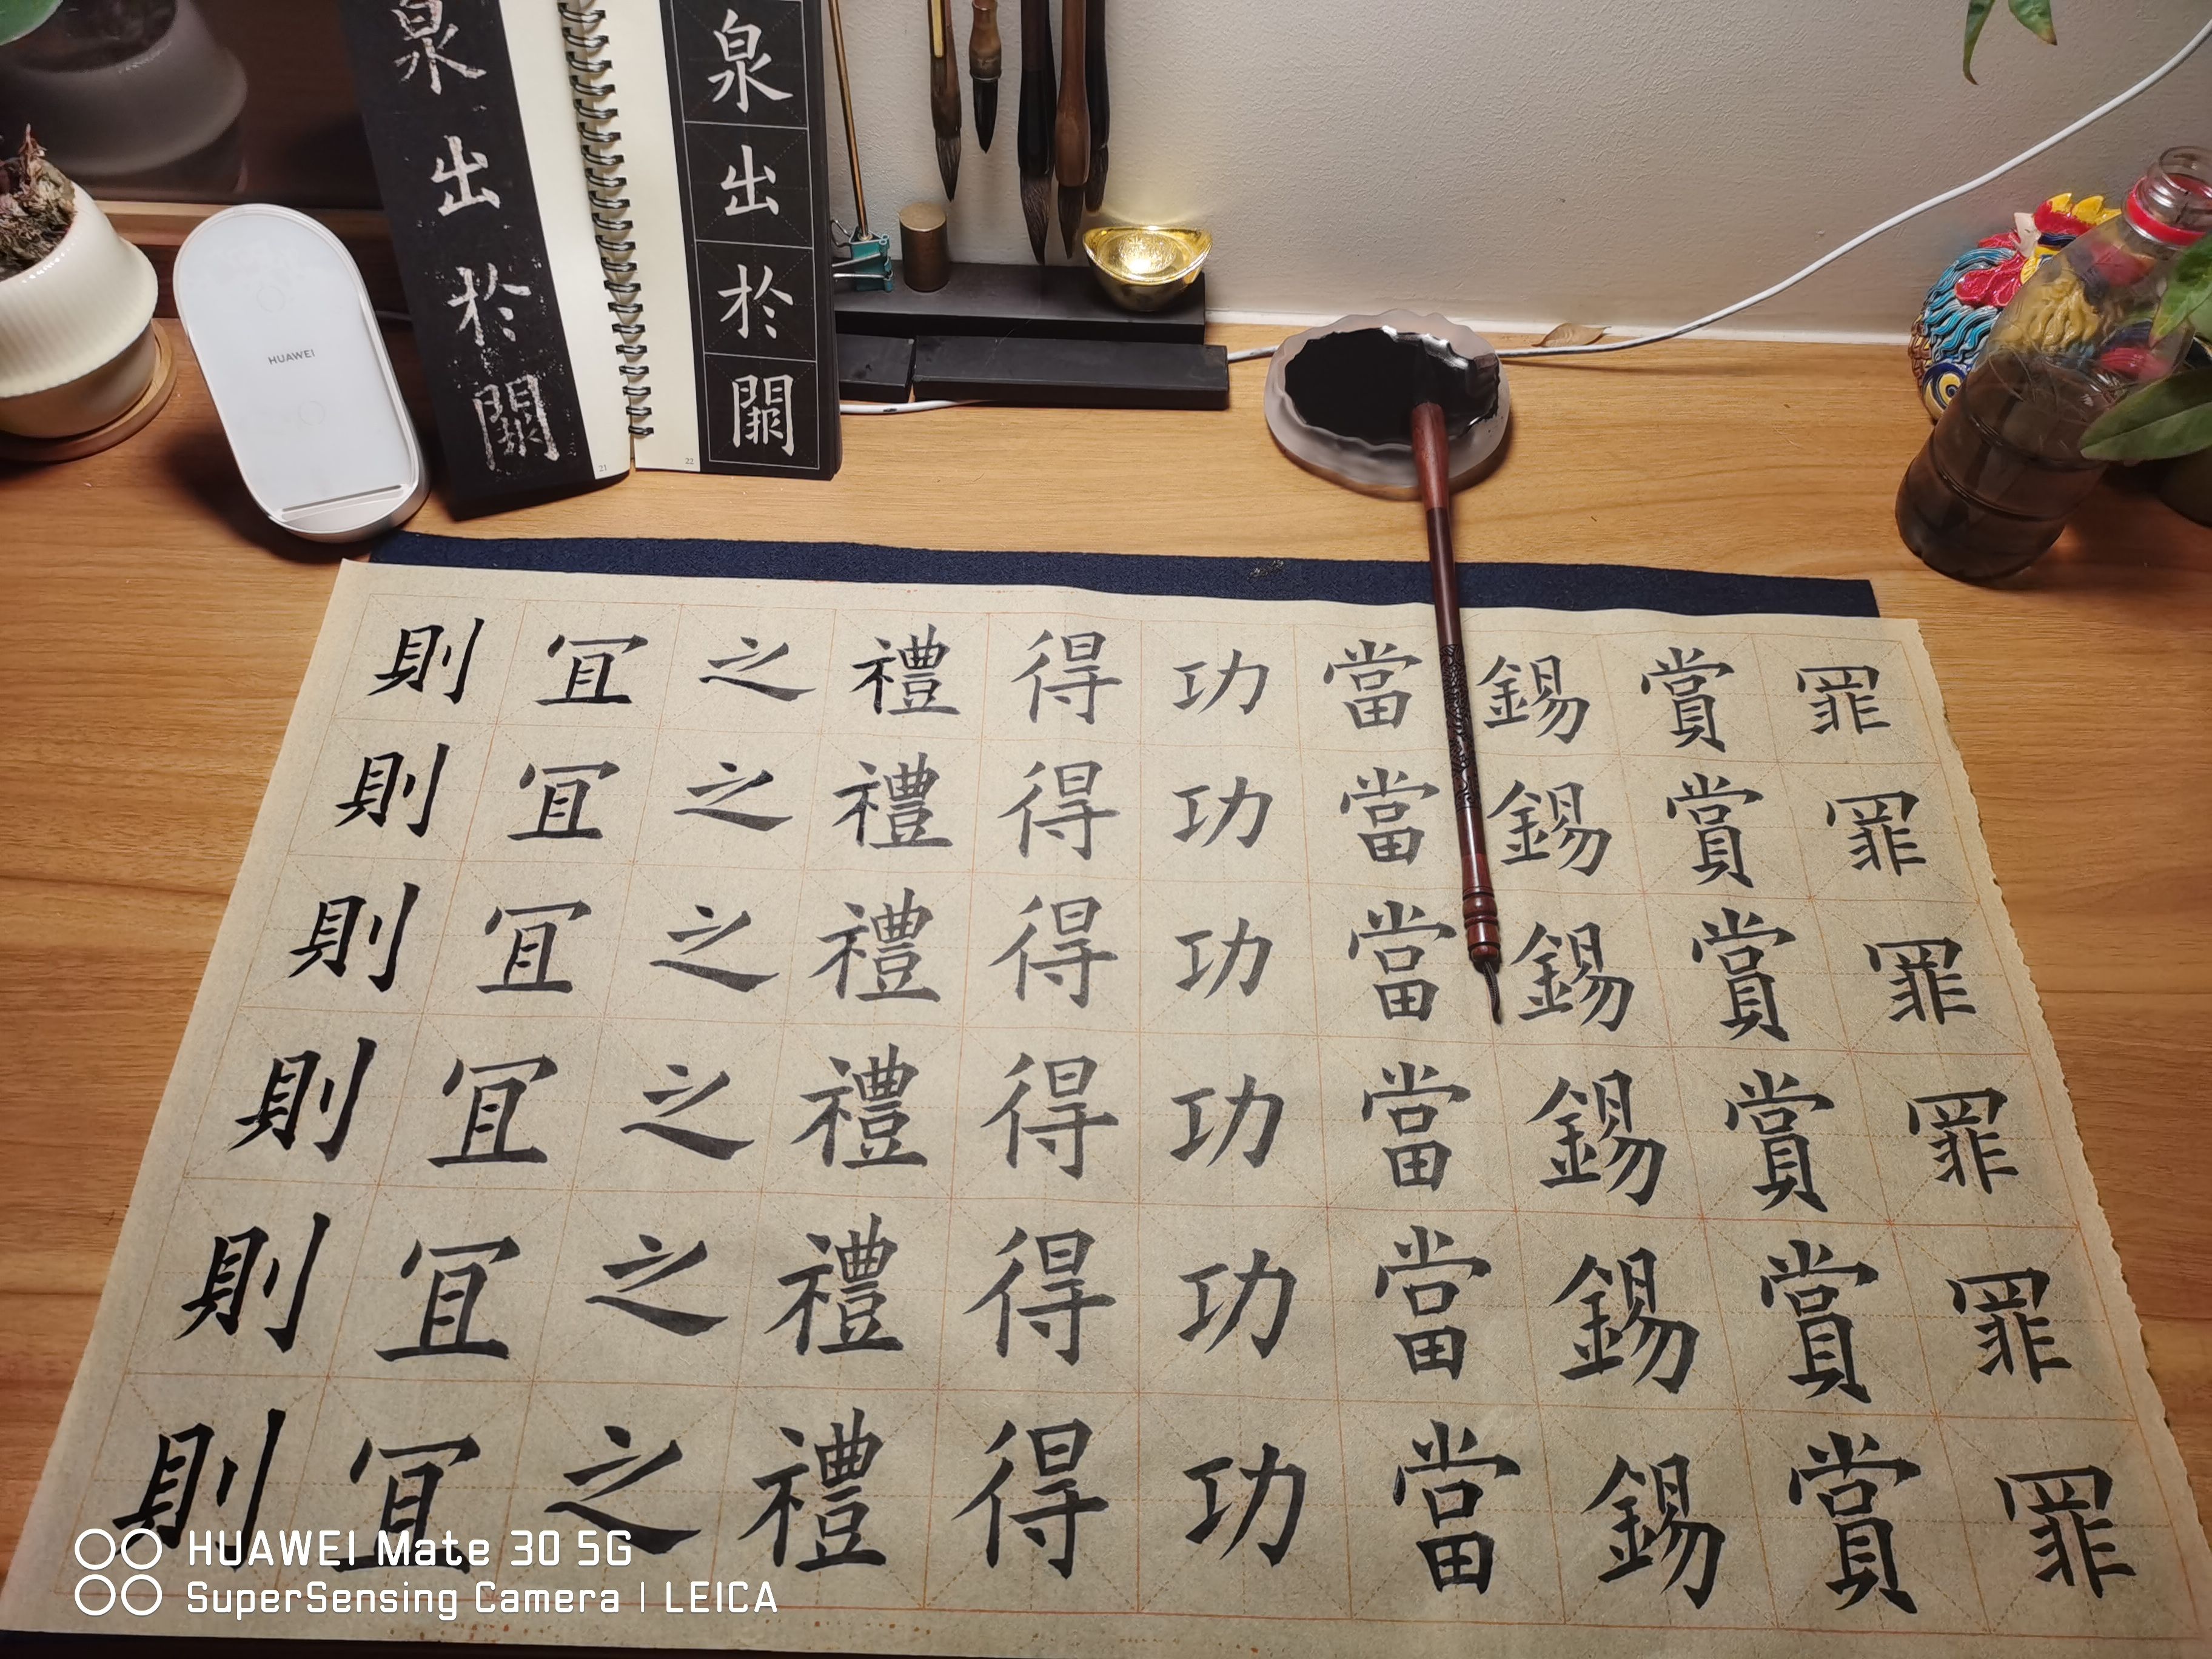 泉出於闕
21
泉出於闕
22
HUAWEI
罪罪罪罪罪罪
賞賞賞賞賞賞
錫錫錫錫錫錫
當當當當當當
功功功功功功
得得得得得得
禮禮禮禮禮禮
之之之之之之
冝冝冝冝冝冝
則則則則則則
HUAWEI Mate 30 5G
SuperSensing Camera | LEICA